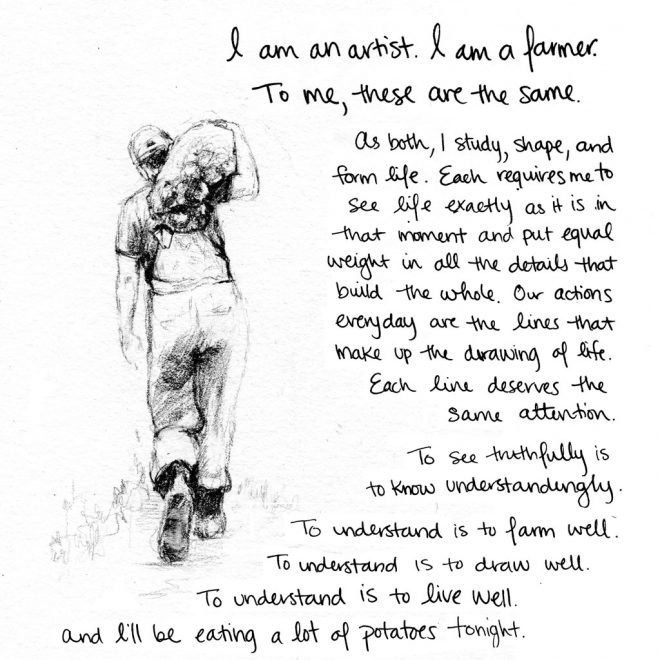 I am an artist. I am a farmer.
To me, these are the same.
As both, I study, shape, and
form life. Each requires me to
see life exactly as it is in
that moment and put equal
weight in all the details that
build the whole. Our actions
everyday are the lines that
make up the drawing of life.
Each line deserves the
same attention.
To see truthfully is
to know understandingly.
To understand is to farm well.
To understand is to draw well.
To understand is to live well.
and I'll be eating a lot of potatoes tonight.